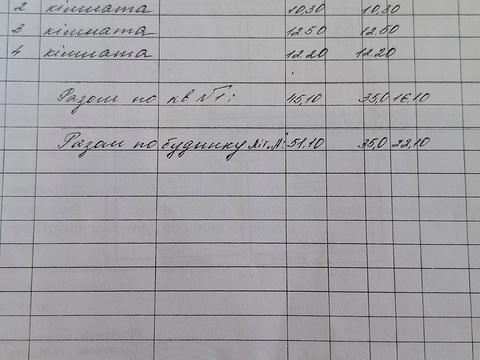 2 кімната 10,30 10,30
3 кімната 12.50 12.50
4 кімната 12.20 12.20
Разом по кв №1: 45,10 35,0 16,10
Разом по будинку літ. 51.10 35,0 22,10